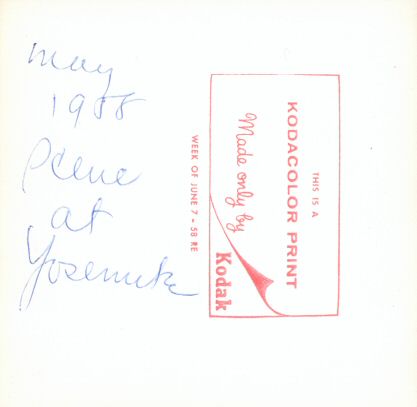 May
1958
Scene
at
Yosemite
THIS IS A
KODACOLOR PRINT
Made only by
Kodak
WEEK OF JUNE 7 - 58 RE